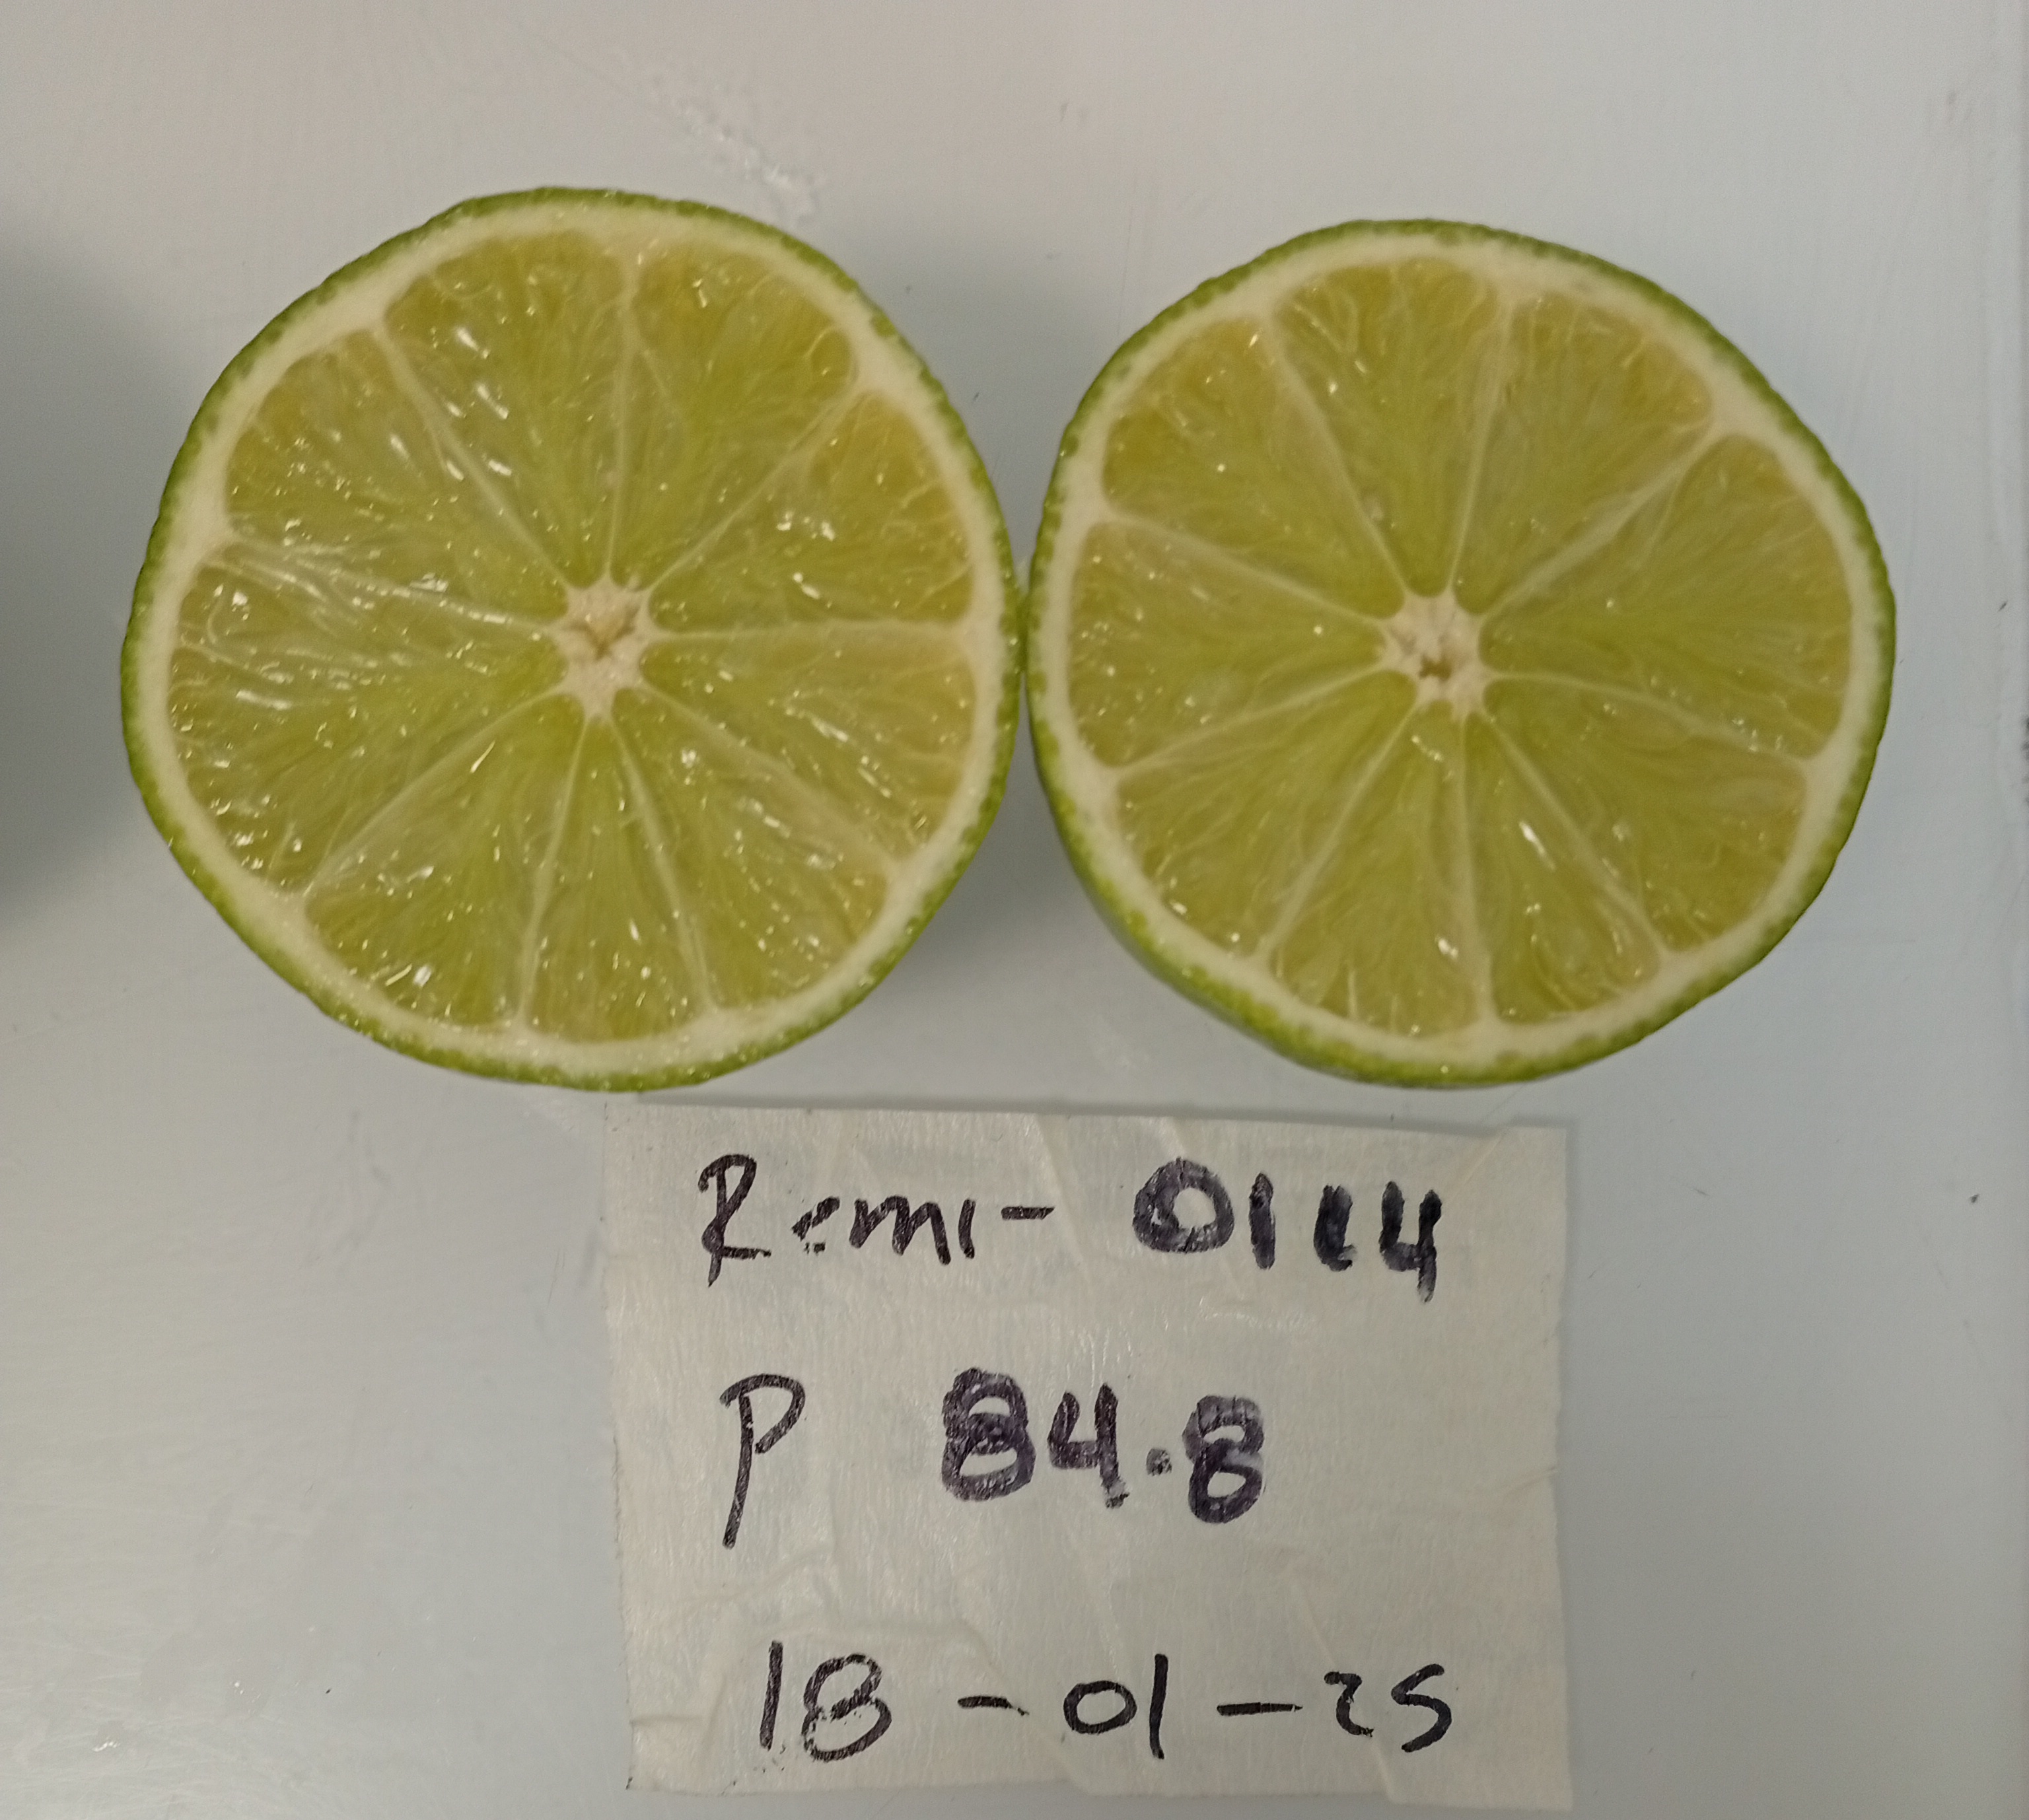 Remi- 0114
P 84.8
18-01-25